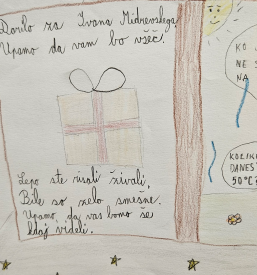 Darilo za Ivana Midrevslega.
Upamo da vam bo všeč.
Lepo ste risali živali,
Bile so zelo smešne.
Upamo, da vas bomo še
kdaj videli.
KO
NE S
NA
KOLIKO
DANES
50°C?